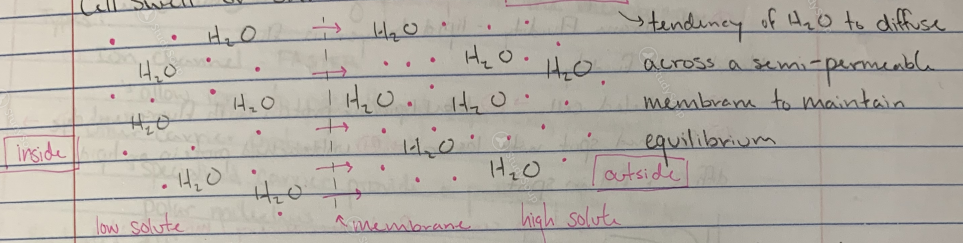 Cell Swell or
H₂O → H₂O ↘tendency of H₂O to diffuse
H₂O → H₂O H₂O across a semi-permeable
H₂O H₂O H₂O membrane to maintain
H₂O → H₂O equilibrium
inside
H₂O → H₂O outside
H₂O →
low solute ↖membrane high solute